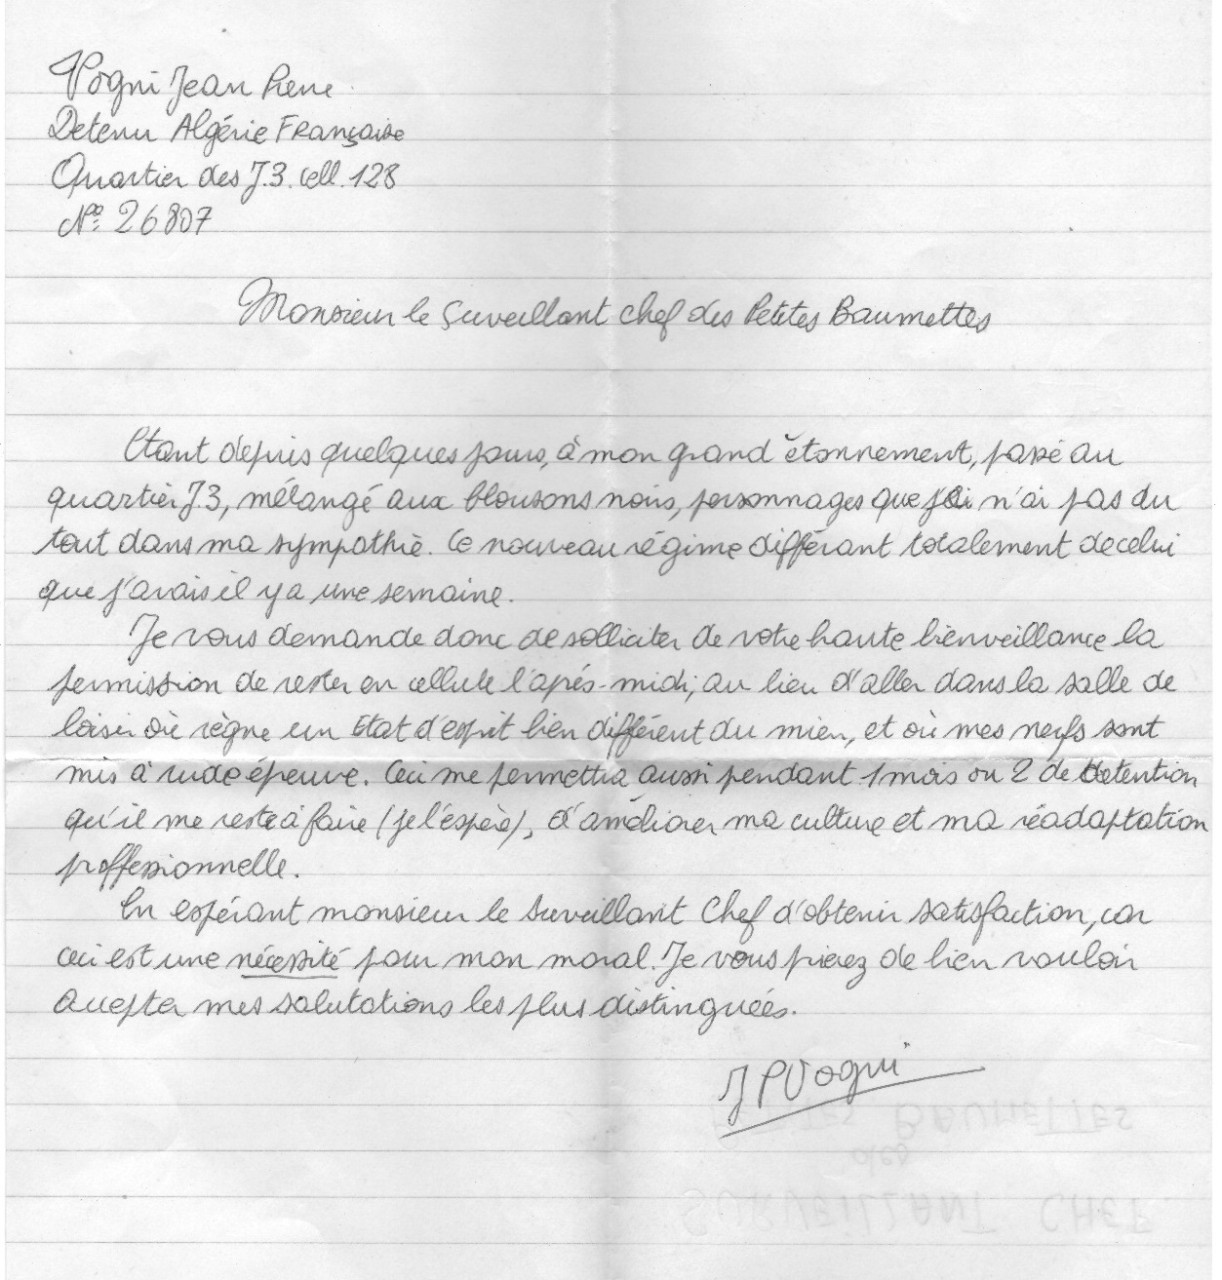 Vogni Jean Pierre
Detenu Algérie Française
Quartier des J.3. cell. 128
N° 26807
Monsieur le Surveillant chef des Petites Baumettes
Etant depuis quelques jours, à mon grand étonnement, passé au
quartier J.3, mélangé aux blousons noirs, personnages que je n'ai pas du
tout dans ma sympathie. Ce nouveau régime différant totalement de celui
que j'avais il y a une semaine.
Je vous demande donc de solliciter de votre haute bienveillance la
permission de rester en cellule l'après-midi, au lieu d'aller dans la salle de
loisir où règne un Etat d'esprit bien différent du mien, et où mes nerfs sont
mis à rude épreuve. Ceci me permettra aussi pendant 1 mois ou 2 de detention
qu'il me reste à faire (je l'espère), d'améliorer ma culture et ma réadaptation
proffessionnelle.
En espérant monsieur le surveillant Chef d'obtenir satisfaction, car
ceci est une nécessité pour mon moral. Je vous pierez de bien vouloir
accepter mes salutations les plus distinguées.
JPVogni
BAUMETTES
des
SURVEILLANT CHEF